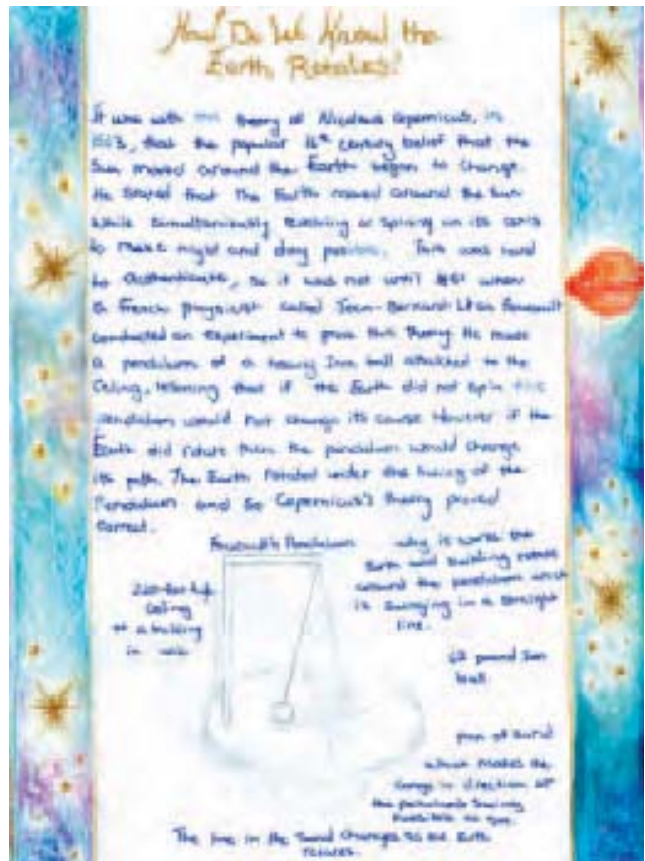 How Do We Know the
Earth Rotates?
It was with this theory of Nicolaus Copernicus, in
that the popular 16th century belief that the
Sun moved around the Earth began to change.
He stated that The Earth moved around the sun
while simultaniously revolving or spining on its axis
to make night and day possible. This was hard
to Authenticate, so it was not until 1851 when
a French physicist called Jean-Bernard Léon Foucault
conducted an experiment to prove this theory. He made
a pendulum of a heavy Iron ball attached to the
Celing, reasoning that if the Earth did not spin the
pendulum would not change its course. However if the
Earth did rotate then the pendulum would change
its path. The Earth rotated under the swing of the
Pendulum and so Copernicus's theory proved
correct.
Foucault's Pendulum
Why it works the
Earth and building rotate
around the pendulum which
is swinging in a straight
line.
Ceiling
of a building
in
62 pound Iron
ball
pan of sand
which makes the
change in direction of
the pendulum's swing
possible to see.
The line in the Sand changes as the Earth
rotates.